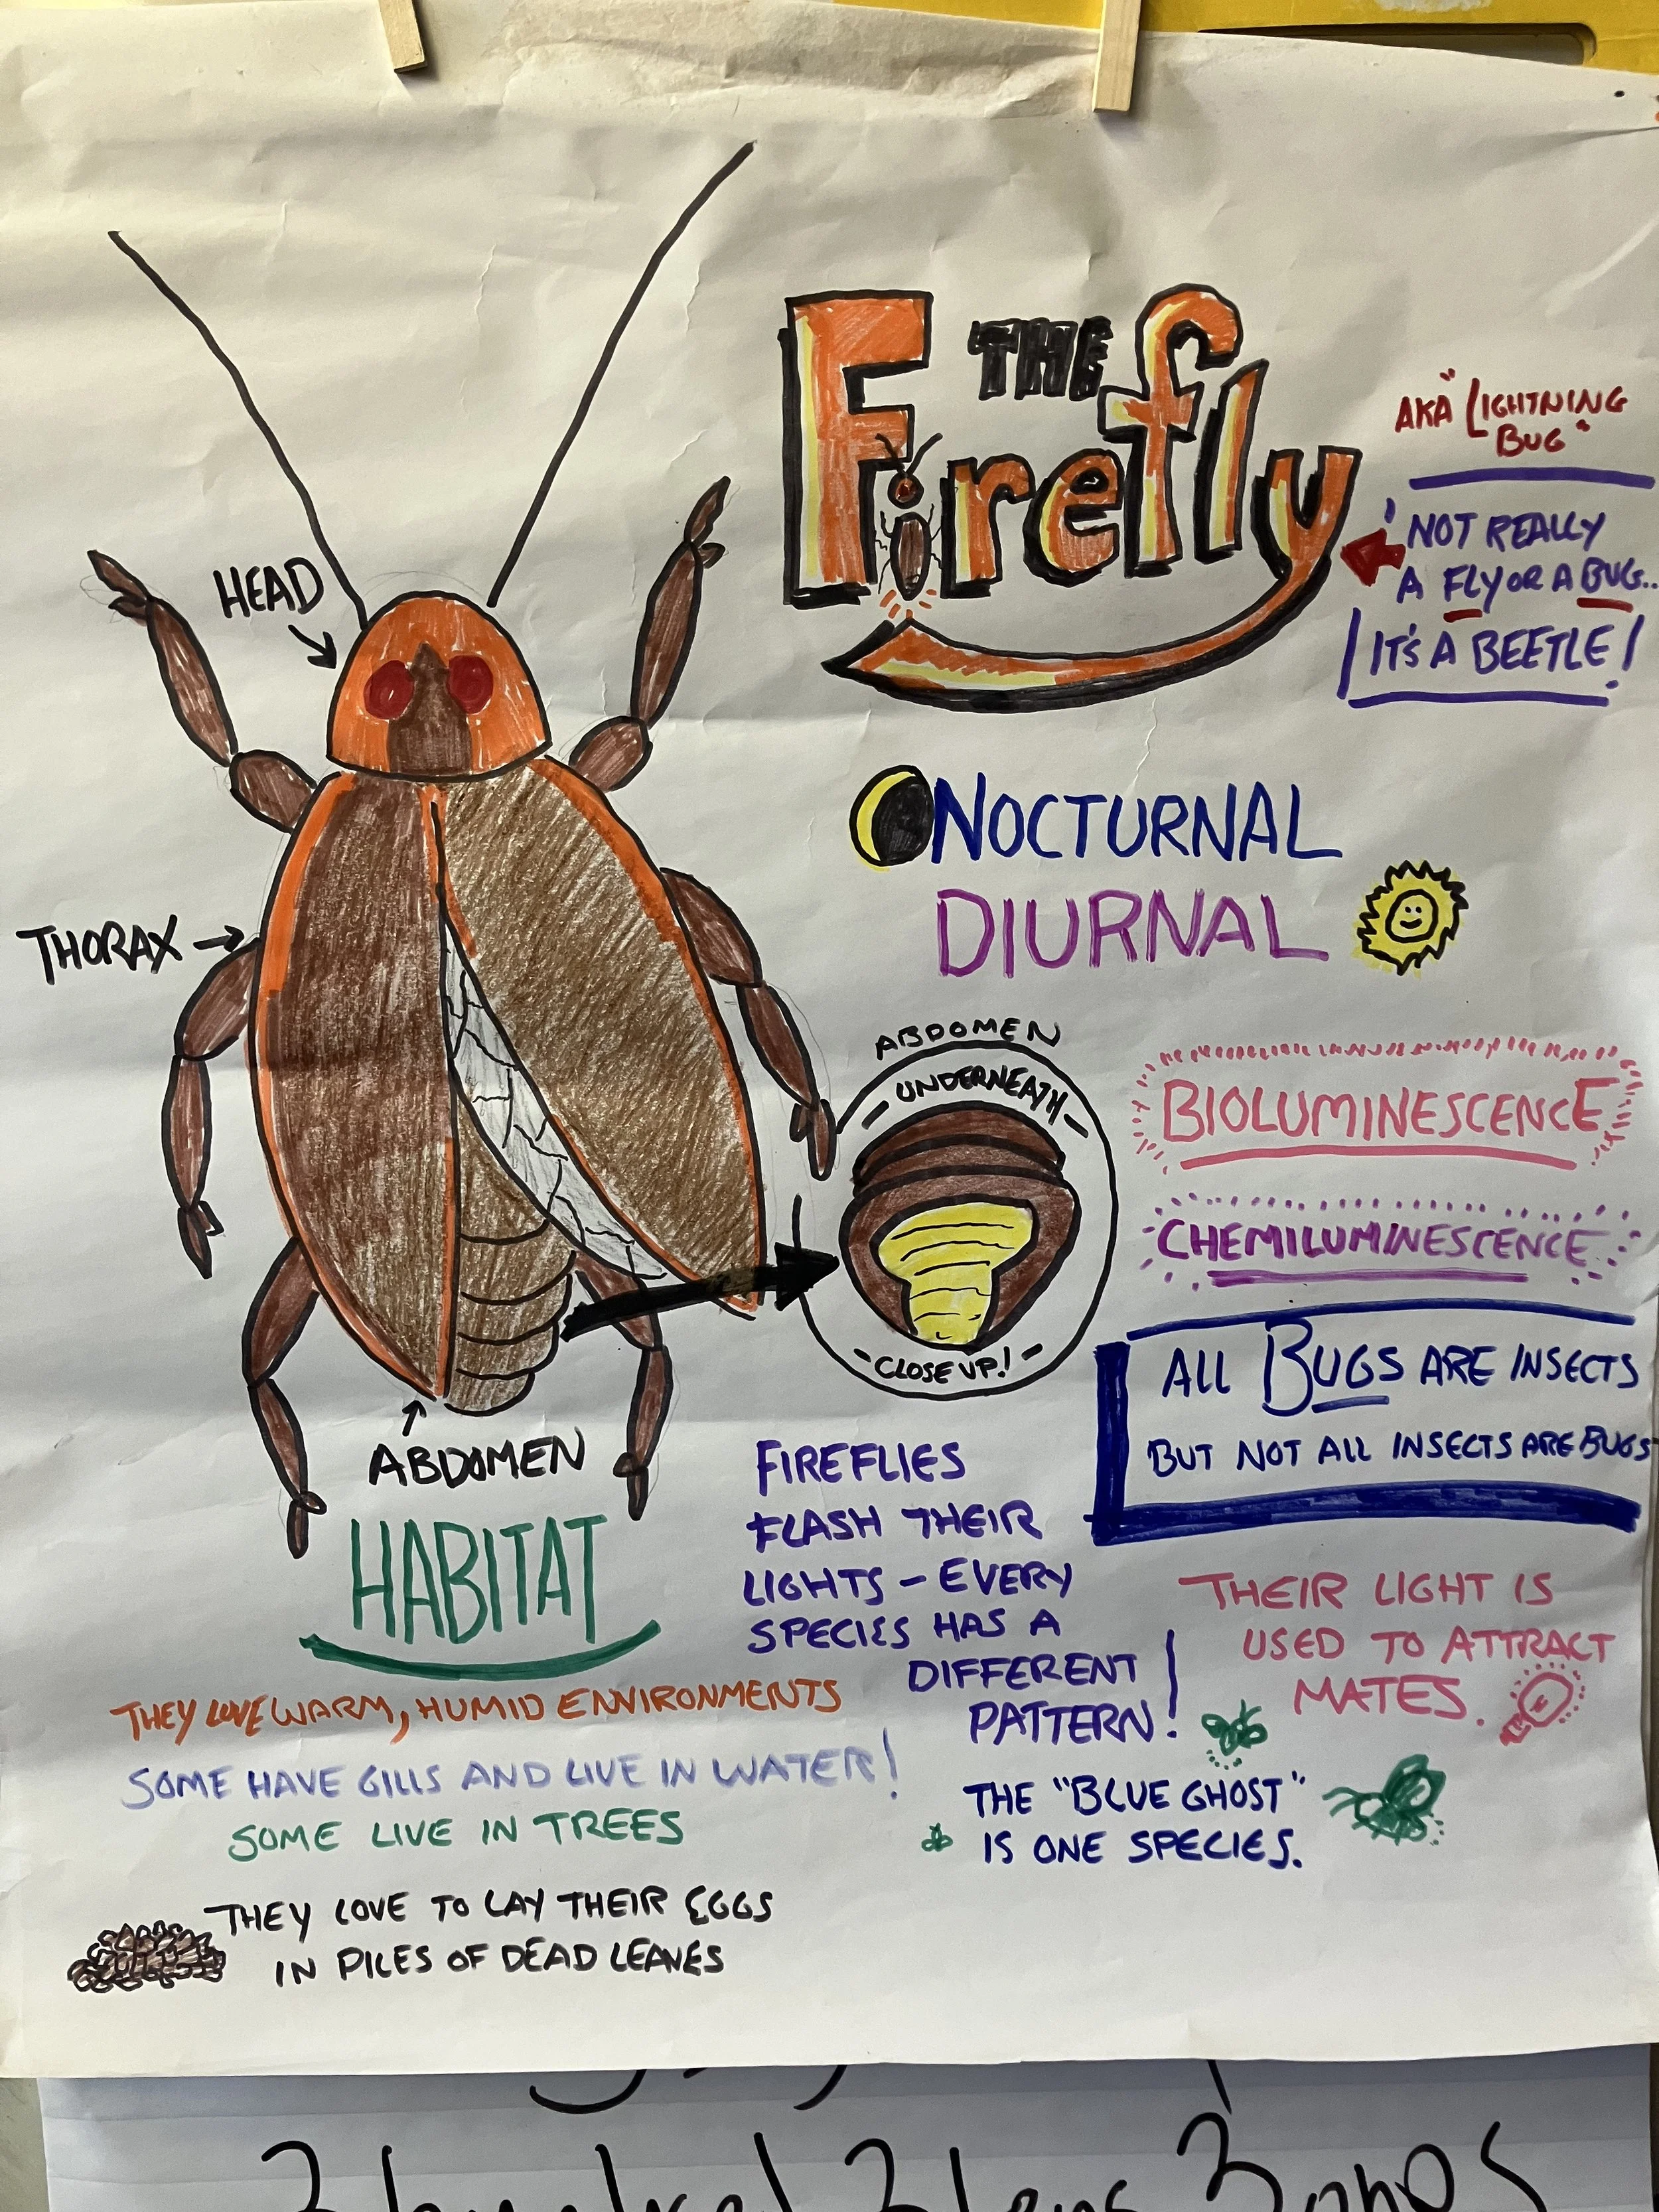 THE
Firefly
AKA "LIGHTNING
BUG"
NOT REALLY
A FLY OR A BUG..
IT'S A BEETLE!
HEAD
THORAX
ABDOMEN
NOCTURNAL
DIURNAL
ABDOMEN
- UNDERNEATH -
- CLOSE UP! -
BIOLUMINESCENCE
CHEMILUMINESCENCE
ALL BUGS ARE INSECTS
BUT NOT ALL INSECTS ARE BUGS
HABITAT
THEY LOVE WARM, HUMID ENVIRONMENTS
SOME HAVE GILLS AND LIVE IN WATER!
SOME LIVE IN TREES
THEY LOVE TO LAY THEIR EGGS
IN PILES OF DEAD LEAVES
FIREFLIES
FLASH THEIR
LIGHTS - EVERY
SPECIES HAS A
DIFFERENT
PATTERN!
THEIR LIGHT IS
USED TO ATTRACT
MATES.
THE "BLUE GHOST"
IS ONE SPECIES.